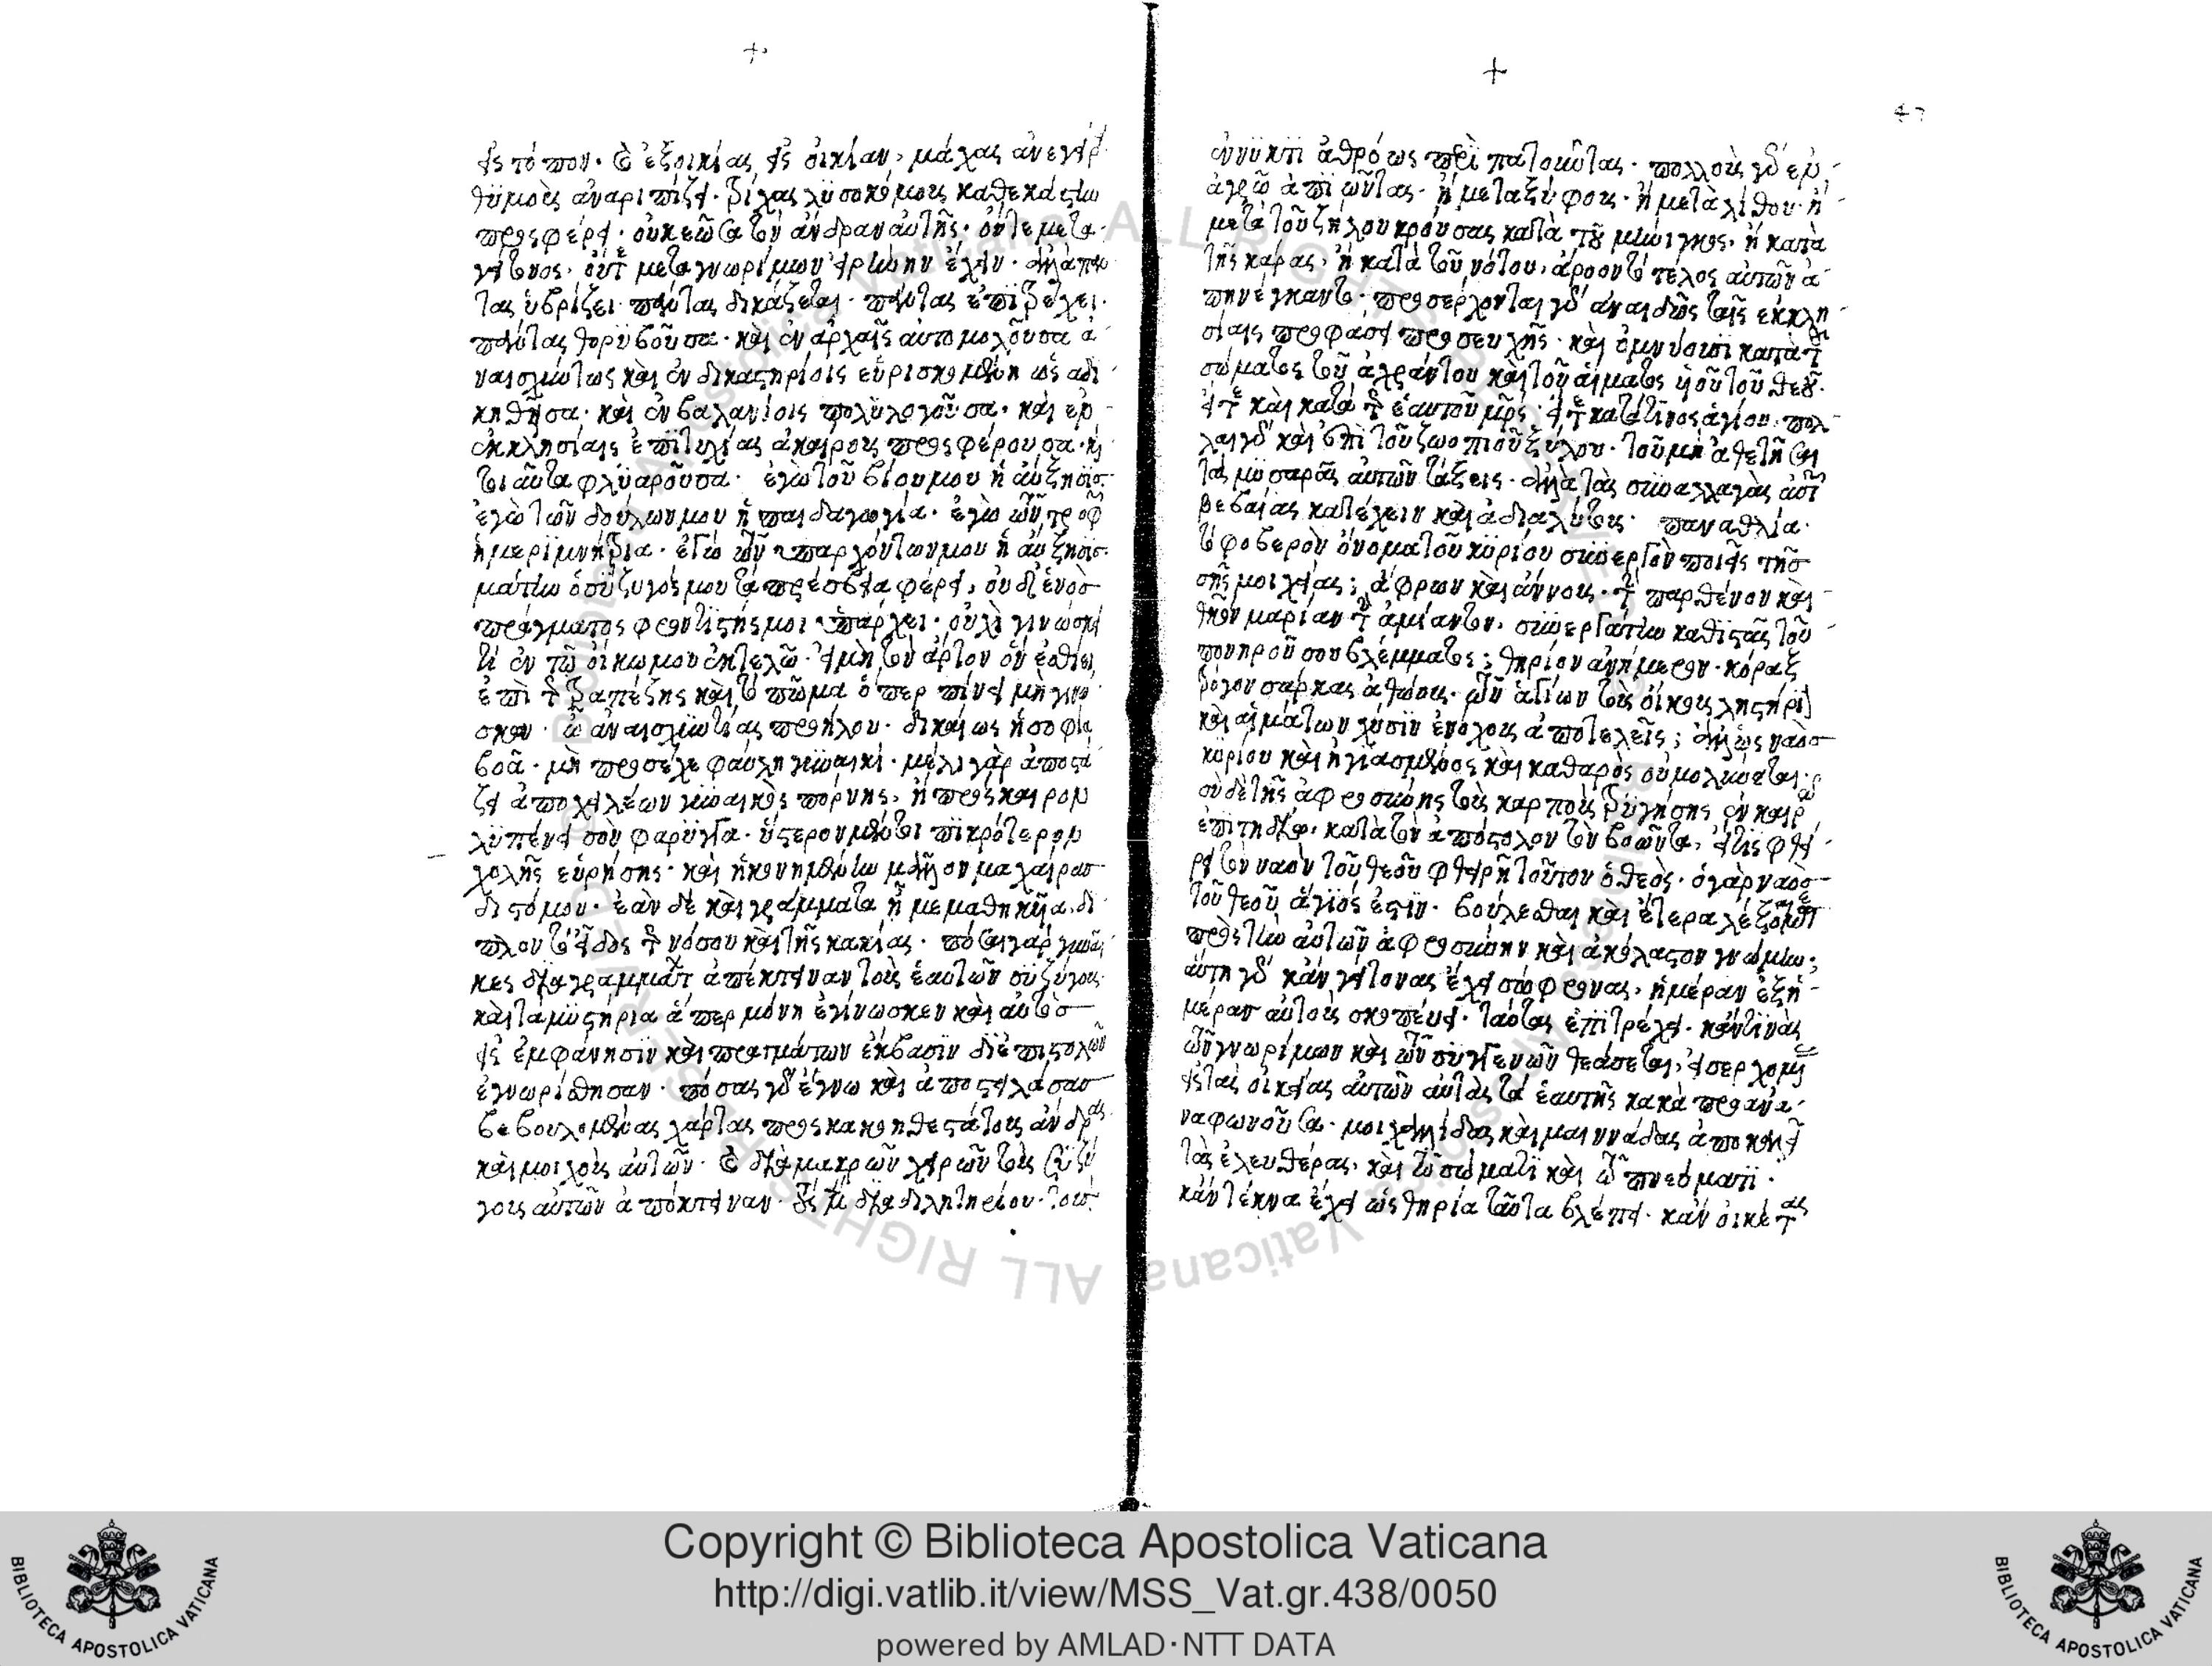 εἰς τόπον· καὶ ἐξ οἰκίας εἰς οἰκίαν, μάχας ἀνεγείρει
θυμοὺς ἀναριπίζει· τρίχας λυσοκόμους καθεκάστην
προσφέρει· οὐκ ἐῶσα τὸν ἄνδραν αὐτῆς· οὔτε μετὰ
γείτονος· οὔτε μετὰ γνωρίμων εἰρήνην ἔχειν· ἀλλὰ πάν
τας ὑβρίζει· πάντας δικάζεται· πάντας ἐπιτρέχει·
πάντας θορυβοῦσα· καὶ ἐν ἀρχαῖς αὐτομολοῦσα ἀ
ναισχύντως καὶ ἐν δικαστηρίοις εὑρισκομένη ὡς ἀδι
κηθῆσα· καὶ ἐν βαλανίοις πολυλογοῦσα· καὶ ἐν
ἐκκλησίαις ἐπιτυχίας ἀκαίρους προσφέρουσα· καὶ
τοιαῦτα φλυαροῦσα· ἐγὼ τοῦ βίου μου ἡ αὔξησις·
ἐγὼ τῶν δούλων μου ἡ παιδαγωγία· ἐγὼ τῶν τροφῶν
ἡ μεριμνήτρια· ἐγὼ τῶν ὑπαρχόντων μου ἡ αὔξησις·
μάτην ὁ σύζυγός μου τὰ πρέσβεια φέρει, οὐδὲ ἑνὸς
πράγματος φροντιστής μοι ὑπάρχει· οὐχὶ γινώσκει
τί ἐν τῷ οἴκω μου ἐκτελῶ· εἰ μὴ τὸν ἄρτον ὃν ἐσθίει
ἐπὶ τῆς τραπέζης καὶ τὸ πῶμα ὅπερ πίνει μὴ γινώ
σκων· ὢ ἀναισχυντίας προδήλου· δικαίως ἡ σοφία
βοᾶ· μὴ πρόσεχε φαύλη γυναικί· μέλι γὰρ ἀποστά
ζει ἀπὸ χειλέων γυναικὸς πόρνης, ἣ πρὸς καιρὸν
λυπένει σὸν φάρυγγα· ὕστερον μέντοι πικρότερον
χολῆς εὑρήσης· καὶ ἠκονημένην μᾶλλον μαχαίρας
διστόμου· ἐὰν δὲ καὶ γράμματα ἢ μεμαθηκῦια, δι
πλοῦν τὸ εἶδος τῆς νόσου καὶ τῆς κακίας· πόσαι γὰρ γυναῖ
κες διὰ γραμμάτων ἀπέκτειναν τοὺς ἑαυτῶν συζύγους·
καὶ τὰ μυστήρια ἅπερ μόνη ἐγίνωσκεν καὶ αὐτὸς
εἰς ἐμφάνησιν καὶ πραγμάτων ἔκβασιν δι' ἐπιστολῶν
ἐγνωρίσθησαν· πόσας γὰρ ἔγνω καὶ ἀποστειλάσας
βεβουλομένας χάρτας πρὸς κακοηθεστάτους ἄνδρας
καὶ μοιχοὺς αὐτῶν· καὶ διὰ μακρῶν χειρῶν τοὺς συζύ
γους αὐτῶν ἀπόκτειναν· τὰς μὲν διὰ διλητηρίου· τοὺς
ἐν νυκτὶ ἀθρόως περιπατοῦντας· πολλοὺς γὰρ ἐν
ἀγρῶ ἀπιῶντας· ἢ μετὰ ξίφους· ἢ μετὰ λίθου· ἢ
μετὰ τοῦ ξύλου κρούσας κατὰ τοῦ μήνιγκος, ἢ κατὰ
τῆς κάρας, ἢ κατὰ τοῦ νότου, ἄροον τὸ τέλος αὐτῶν ἀ
πηνέγκαντο· προσέρχονται γὰρ ἀναιδῶς ταῖς ἐκκλη
σίαις προφάσει προσευχῆς· καὶ ὀμνύουσι κατὰ τοῦ
σώματος τοῦ ἀχράντου καὶ τοῦ αἵματος υἱοῦ τοῦ θεοῦ·
εἴτε καὶ κατὰ τῆς ἑαυτοῦ μητρός, εἴτε κατά τινος ἁγίου· πολ
λαὶ γὰρ καὶ ἐπὶ τοῦ ζωοπιοῦ ξύλου· τοῦ μὴ ἀθετῆσαι
τὰς μυσαρᾶς αὐτῶν τάξεις· ἀλλὰ τὰς συναλλαγὰς αὐτῶν
βεβαίας κατέχειν καὶ ἀδιαλύτους· παναθλία·
τὸ φοβερὸν ὄνομα τοῦ κυρίου συνεργὸν ποιεῖς τῆς
σῆς μοιχείας; ἄφρων καὶ ἄννους· τὴν παρθένον καὶ
θεοτόκον μαρίαν τὴν ἀμίαντον, συνεργάτην καθιστᾶς τοῦ
πονηροῦ σου βλέμματος; θηρίον ἀνήμερον· κόραξ
τρώγου σάρκας ἀθώους· τῶν ἁγίων τοὺς οἴκους ληστήρια
καὶ αἱμάτων χύσιν ἐνόχους ἀποτελεῖς; ἀλλ' ὡς ναὸς
κυρίου καὶ ἡγιασμένος καὶ καθαρὸς οὐ μολύνεται·
σὺ δὲ τῆς ἀφροσύνης τοὺς καρποὺς τρυγήσης ἐν καιρῶ
ἐπιτηδείω· κατὰ τὸν ἀπόστολον τὸν βοῶντα, εἴ τις φθεί
ρει τὸν ναὸν τοῦ θεοῦ φθερῆ τοῦτον ὁ θεός· ὁ γὰρ ναὸς
τοῦ θεοῦ ἅγιός ἐστιν· βούλεσθαι καὶ ἕτερα λέξομαι
πρὸς τὴν αὐτῶν ἀφροσύνην καὶ ἀκόλαστον γνώμην·
αὕτη γὰρ κἂν γείτονας ἔχει σώφρονας, ἡμέραν ἐξ ἡ
μέρας αὐτοὺς σκοπεύει· ταύτας ἐπιτρέχει· κἄν τινὰς
τῶν γνωρίμων καὶ τῶν συγγενῶν θεάσεται, εἰσερχομένη
εἰς τὰς οἰκείας αὐτῶν αὐτὰς τὰ ἑαυτῆς κακὰ προανα
ναφωνοῦσα· μοιχαλλίδας καὶ μαινάδας ἀποκαλεῖ
τὰς ἐλευθέρας, καὶ τῶ σώματι καὶ τῶ πνεύματι·
κἂν τέκνα ἔχει ὡς θηρία ταῦτα βλέπει· κἂν οἰκέτας